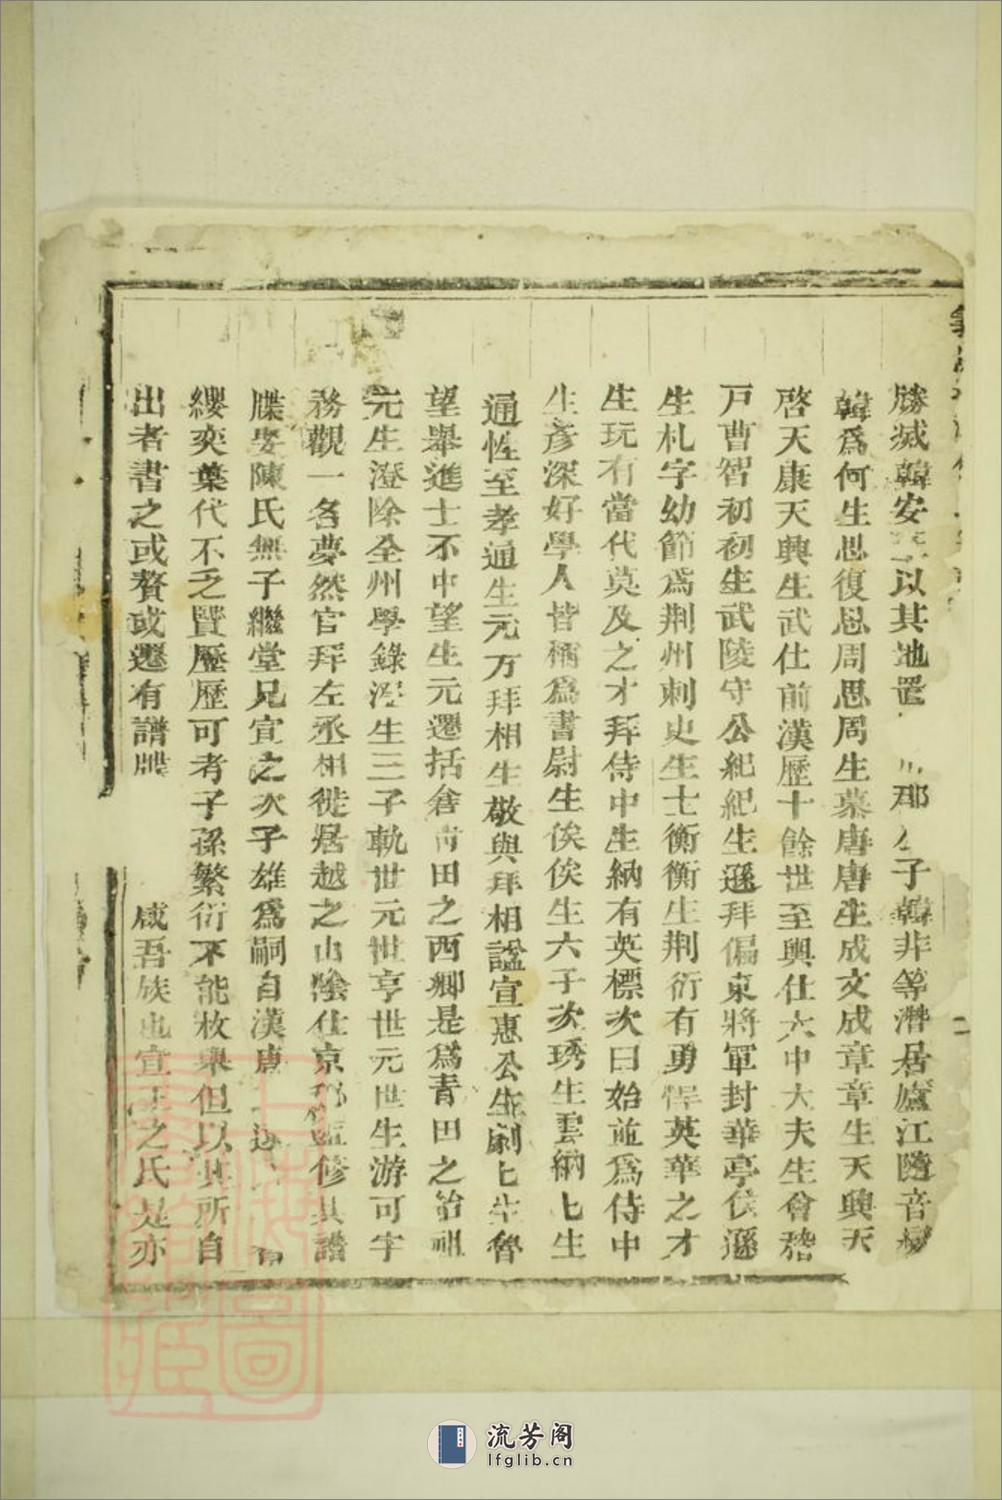 勝滅韓安以其地置那子韓非等潛居廬江隨音變
韓爲何生思復思周思周生慕唐唐生成文成章章生天興天
啓天康天興生武仕前漢歷十餘世至興仕大中大夫生會稽
戸曹智初初生武陵守公紀紀生遜拜偏東將軍封華亭侯遜
生札字幼節爲荆州刺史生士衡衡生荆衍有勇悍英華之才
生玩有當代莫及之才拜侍中生納有英標次曰始並爲侍中
生彥深好學人皆稱爲書尉生俟俟生六子次琇生雲納七生
通性至孝通生元方拜相生敬與拜相諡宣惠公生劇七生魯
望舉進士不中望生元遷括倉青田之西鄉是爲青田之始祖
元生澄除全州學錄澄生三子軌世元世亨世元世生游可字
務觀一名夢然官拜左丞相徙居越之山陰仕京監修其譜
牒娶陳氏無子繼堂兄宣之次子雄爲嗣自漢唐
纓奕葉代不乏賢歷歷可考子孫繁衍不能枚舉但以其所自
出者書之或贅或遷有譜牒咸吾族也宣王之氏是亦
二
流芳阁
lfglib.cn